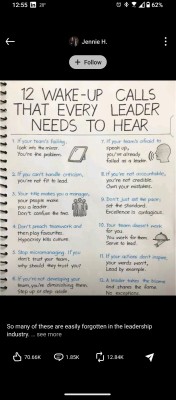 12:55
62%
Jennie H.
+ Follow
12 WAKE-UP CALLS
THAT EVERY LEADER
NEEDS TO HEAR
1. If your team's fading,
look into the mirror.
You're the problem.
2. If you can't handle criticism,
you're not fit to lead.
3. Your title makes you a manager,
your people make
you a leader.
Don't confuse the two.
4. Don't preach teamwork and
then play favourites.
Hypocrisy kills culture.
5. Stop micromanaging. If you
don't trust your team,
why should they trust you?
6. If you're not developing your
team, you're diminishing them.
Step up or step aside.
7. If your team's afraid to
speak up,
you've already
failed as a leader.
8. If you're not accountable,
you're not credible.
Own your mistakes.
9. Don't just set the pace;
set the standard.
Excellence is contagious.
10. Your team doesn't work
for you.
You work for them.
Serve to lead.
11. If your actions don't inspire,
your words won't.
Lead by example.
12. A leader takes the blame
and shares the fame.
No exceptions.
So many of these are easily forgotten in the leadership
industry. ... see more
70.66K
1.85K
12.84K